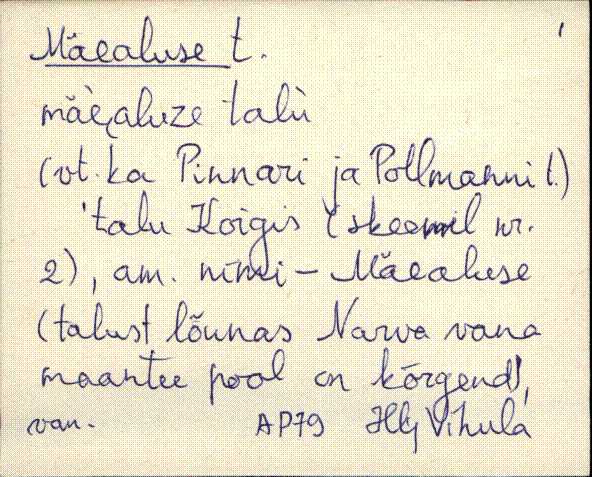 Mäealuse t.
mäe̬aluze talù
(vt. ka Pinnari ja Pollmanni t.)
'talu Koigis (skeemil nr.
2), am. nimi – Mäealuse
(talust lõunas Narva vana
maantee pool on kõrgend),
van. AP79 Hlj Vihula